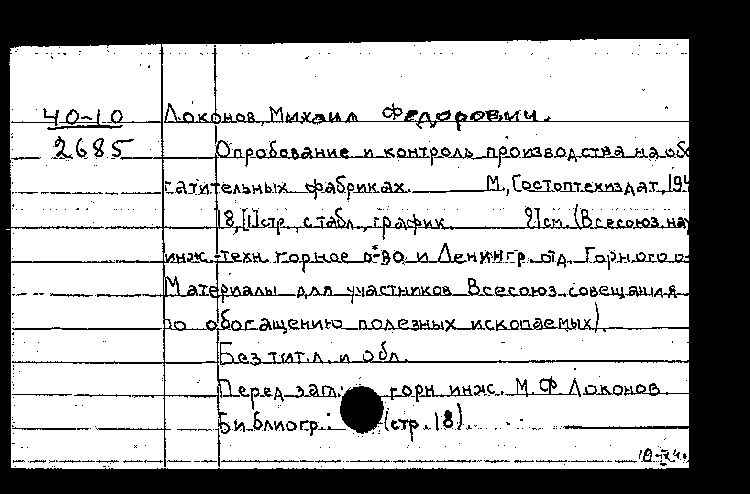 40-10 Локонов, Михаил Федорович.
2685 Опробование и контроль производства на обо
гатительных фабриках. М., Гостоптехиздат, 194
18, [1] стр., с табл., график. 21 см. (Всесоюз. нау
инж.-техн. горное о-во и Ленингр. отд. Горного о-
Материалы для участников Всесоюз. совещания
по обогащению полезных ископаемых)
Без тит. л. и обл.
Перед загл.: горн. инж. М. Ф. Локонов.
Библиогр.: (стр. 18).